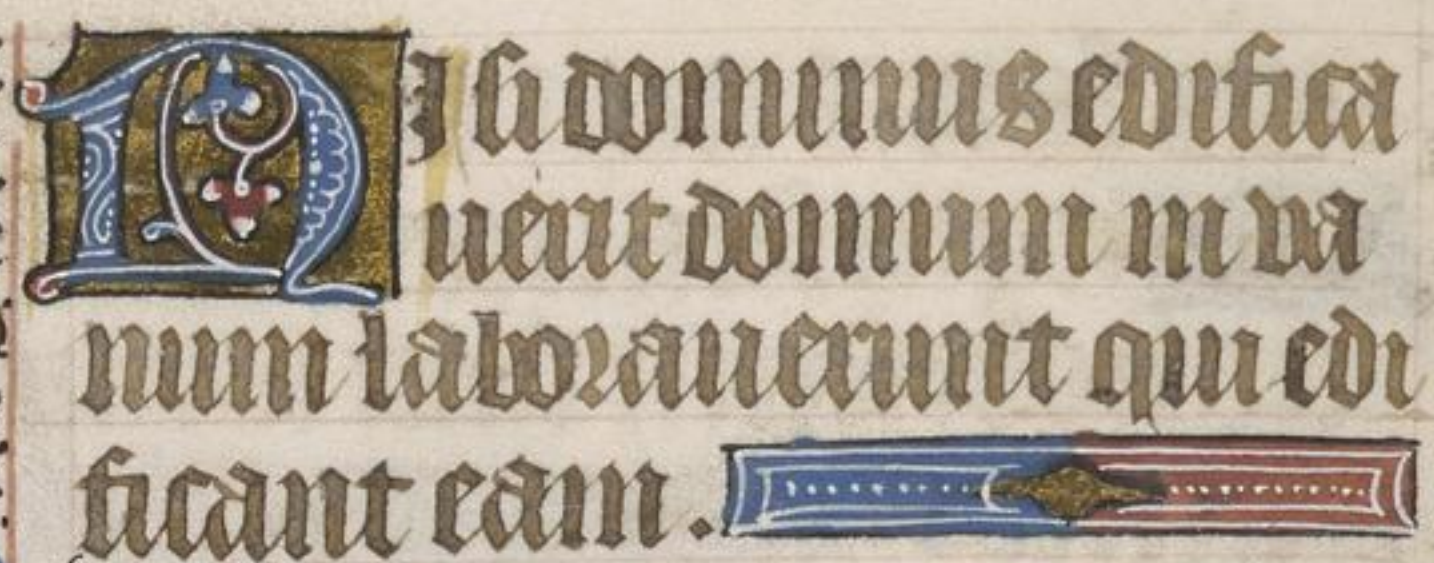 NIsi dominus edifica
uerit domum in va
num laborauerunt qui edi
ficant eam.